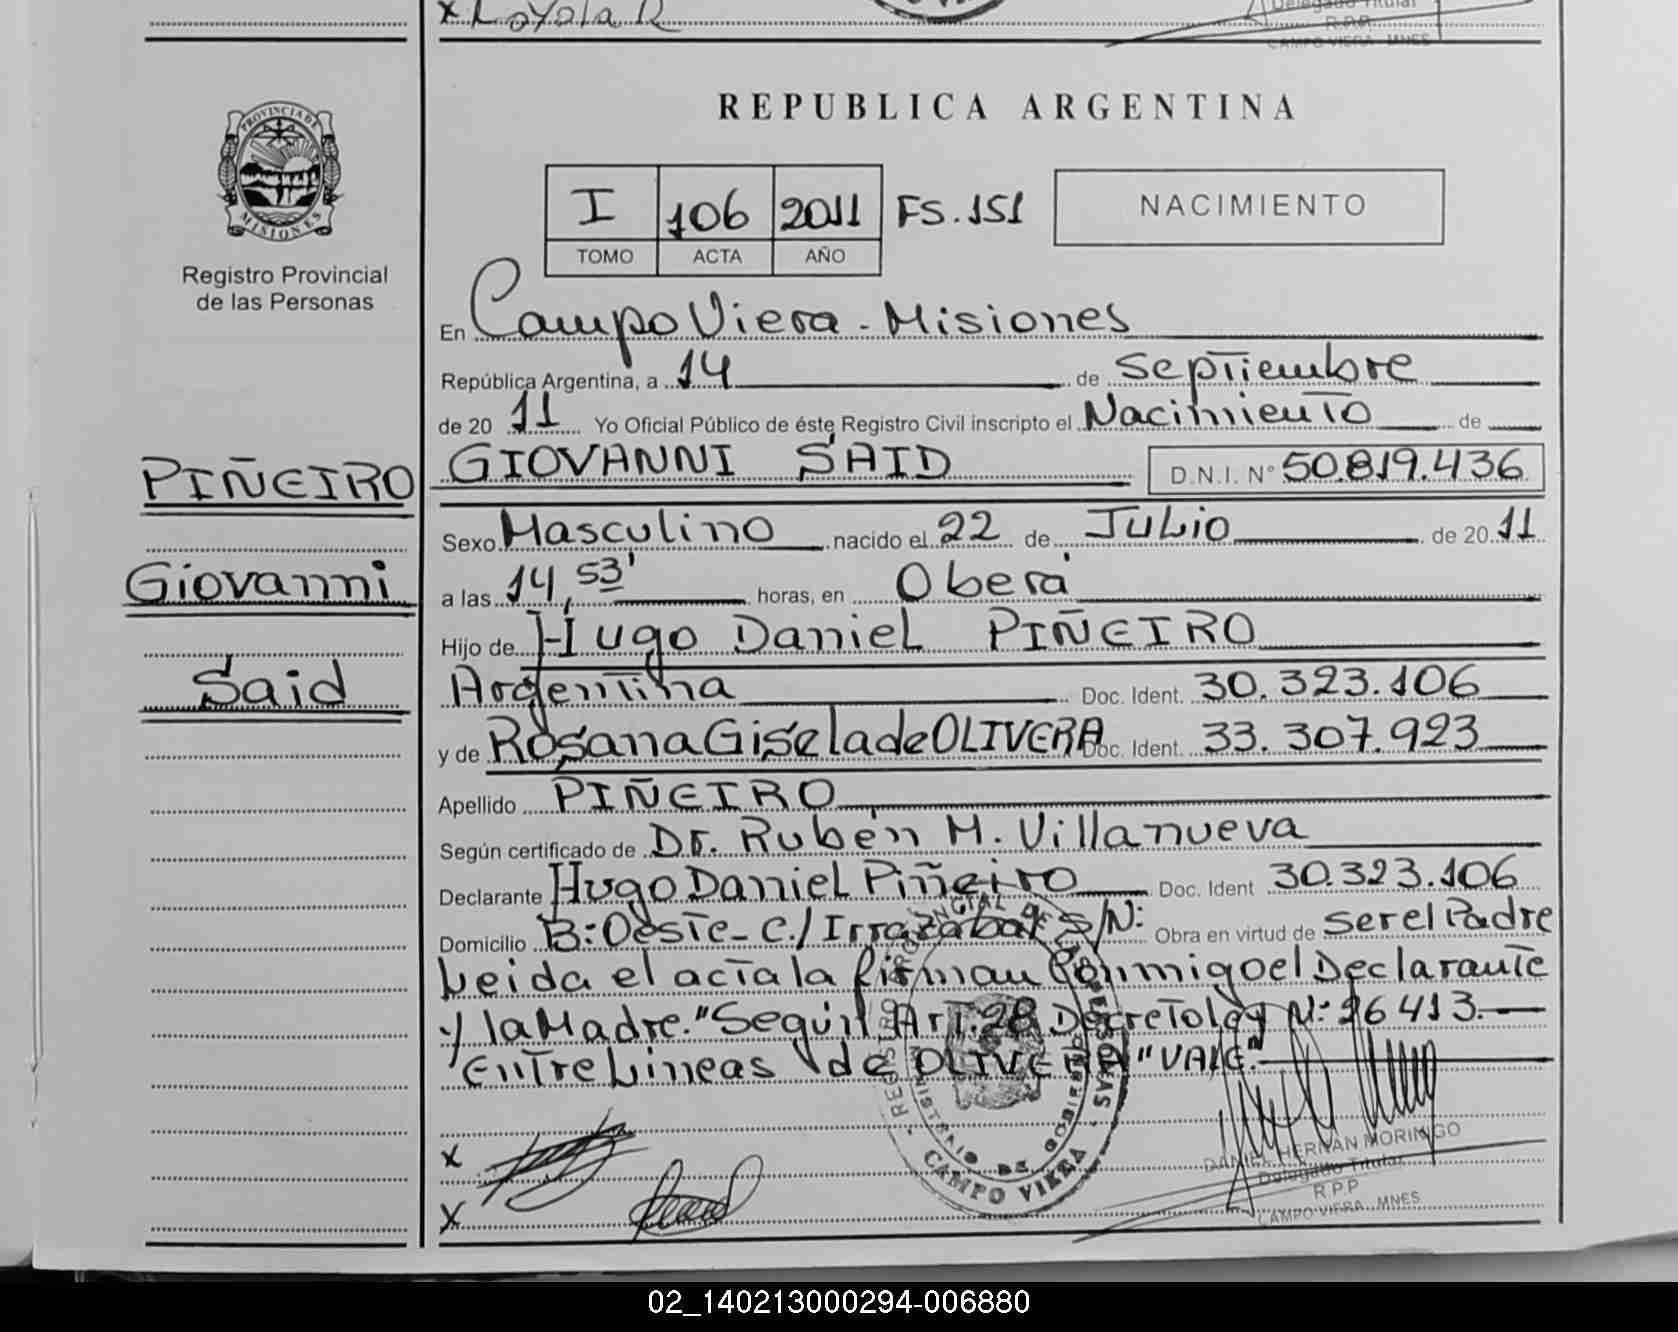 x Loyola R
Delegado Titular
R.P.P.
CAMPO VIERA - MNES
PROVINCIA DE
MISIONES
Registro Provincial
de las Personas
REPUBLICA ARGENTINA
I 106 2011 FS. 151
TOMO ACTA AÑO
NACIMIENTO
En Campo Viera - Misiones
República Argentina, a 14 de Septiembre
de 20 11 Yo Oficial Público de éste Registro Civil inscripto el Nacimiento de
PIÑEIRO GIOVANNI SAID D.N.I. N° 50.819.436
Sexo Masculino nacido el 22 de Julio de 20 11
Giovanni a las 14,53' horas, en Oberá
Hijo de Hugo Daniel PIÑEIRO
Said Argentina Doc. Ident. 30.323.106
y de Rosana Gisela de OLIVERA Doc. Ident. 33.307.923
Apellido PIÑEIRO
Según certificado de Dr. Rubén M. Villanueva
Declarante Hugo Daniel Piñeiro Doc. Ident 30.323.106
Domicilio B: Oeste - C./ Irrazabal S/N: Obra en virtud de ser el Padre
Leida el acta la firman Conmigo el Declarante
y la Madre. "Según Art. 28 Decreto Ley N: 26413.
Entre Lineas de OLIVERA "VALE"
REGISTRO PROVINCIAL DE LAS PERSONAS
MINISTERIO DE GOBIERNO
CAMPO VIERA
x
x
DANIEL HERNAN MORINIGO
Delegado Titular
R.P.P
CAMPO VIERA - MNES
02_140213000294-006880